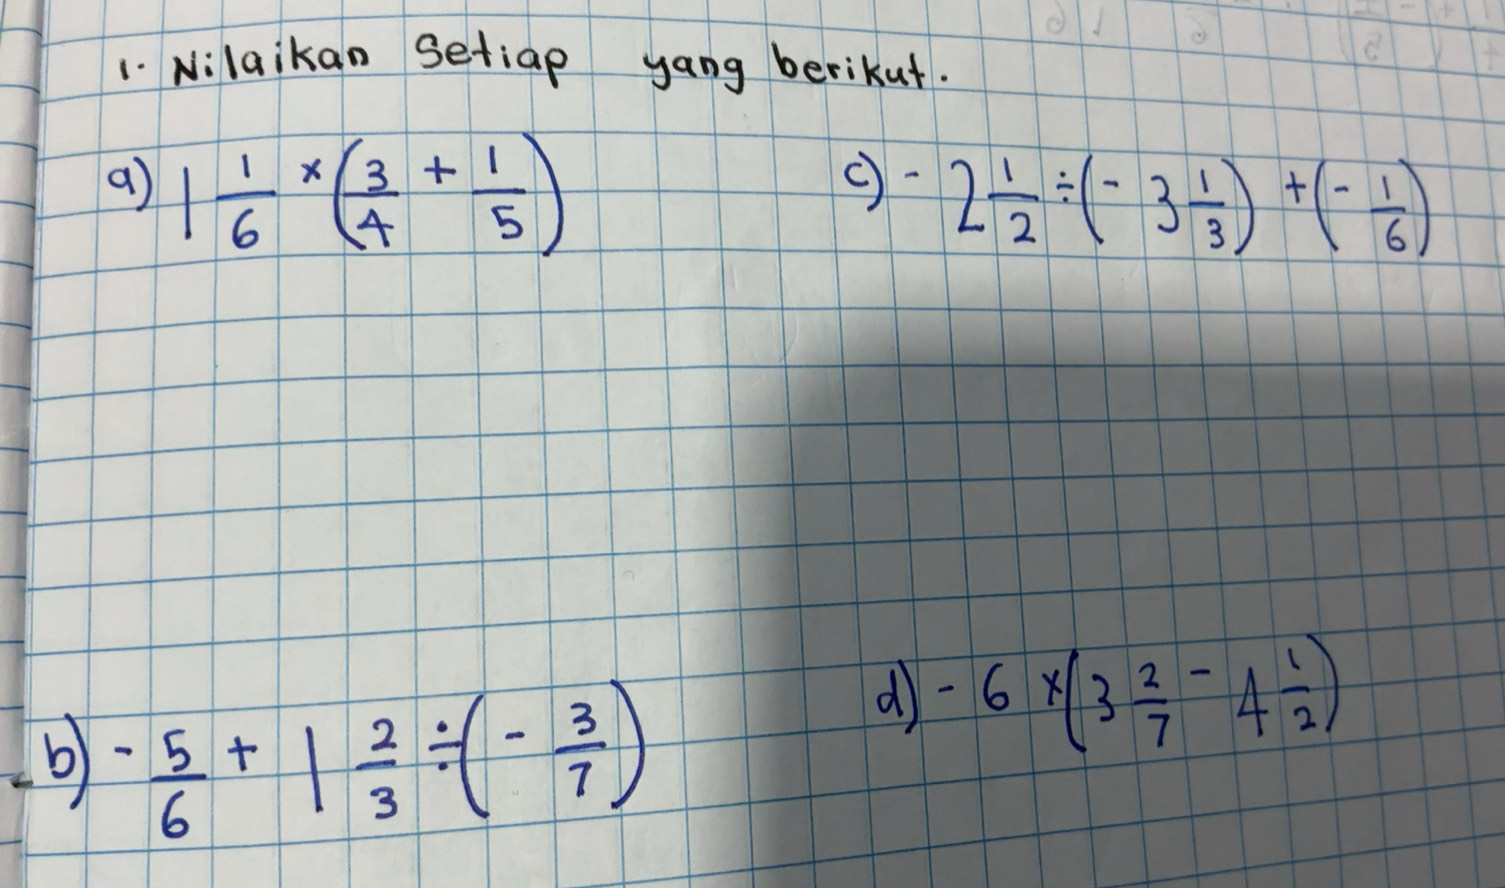 1. Nilaikan Setiap yang berikut.
a) 1 1/6 × (3/4 + 1/5)
c) - 2 1/2 ÷ (- 3 1/3) + (- 1/6)
b) - 5/6 + 1 2/3 ÷ (- 3/7)
d) - 6 × (3 2/7 - 4 1/2)